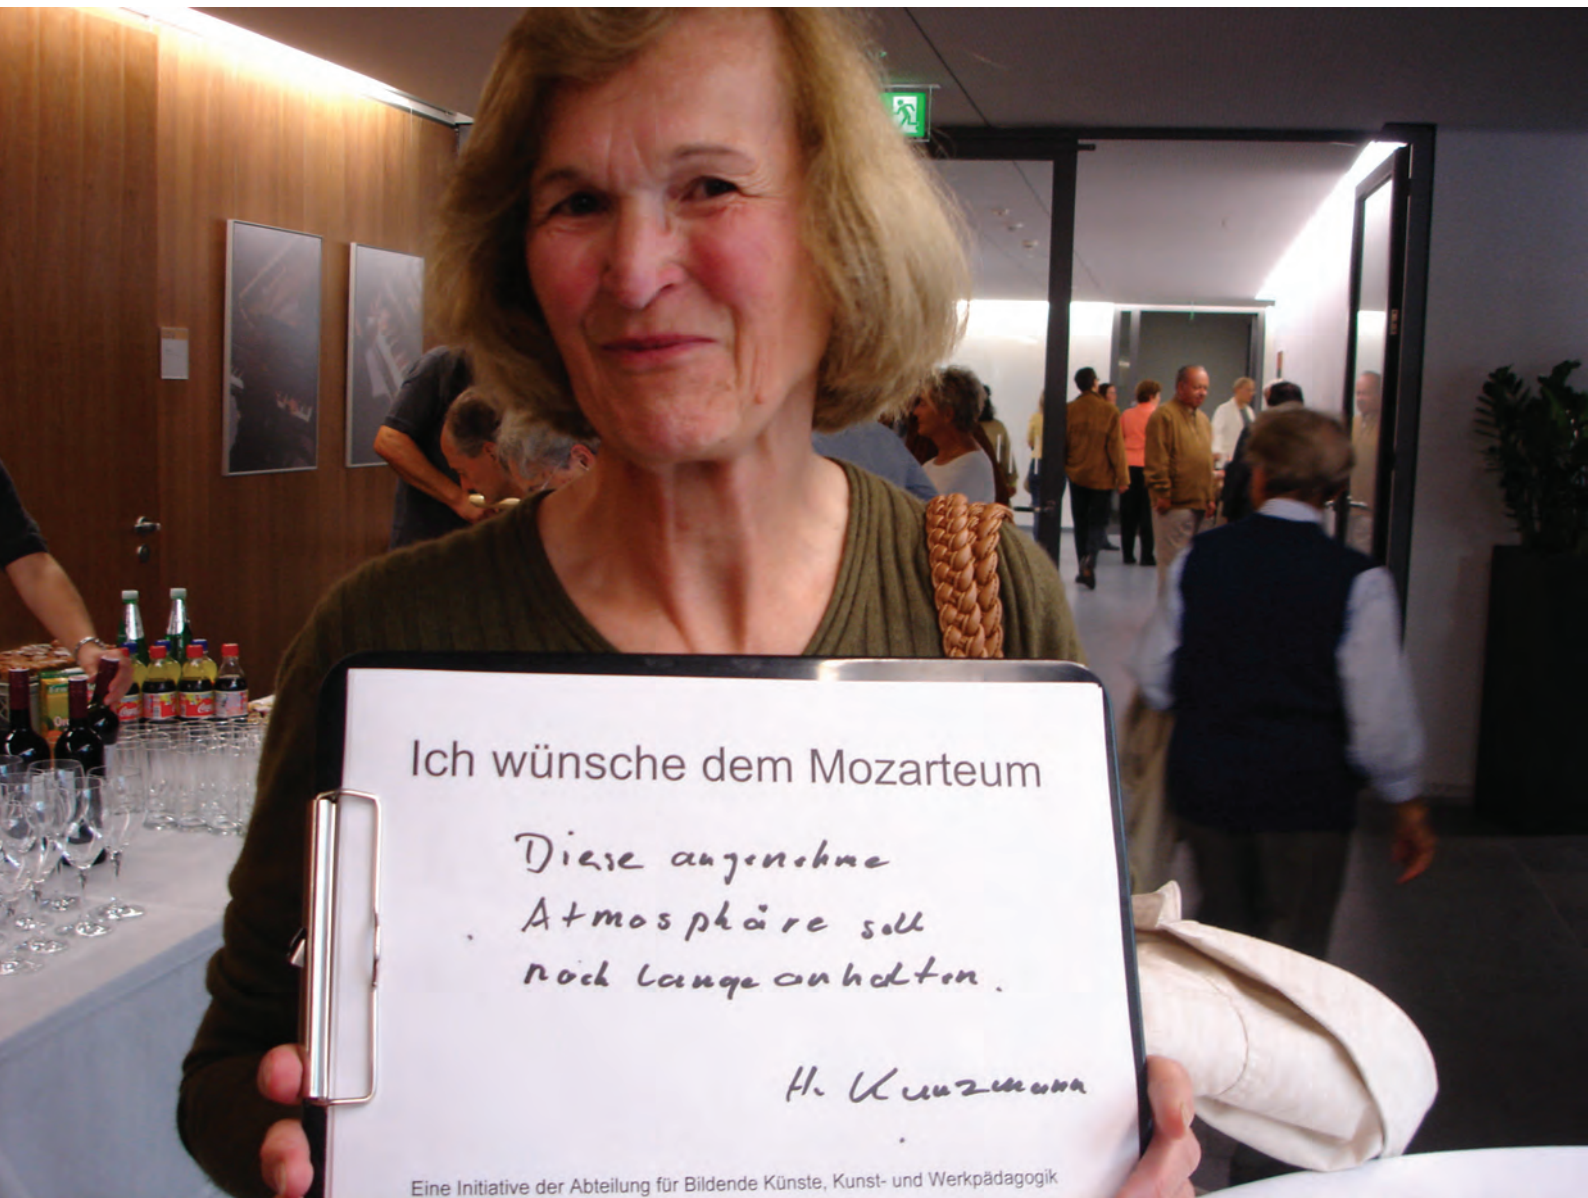 Ich wünsche dem Mozarteum
Diese angenehme
Atmosphäre soll
noch lange anhalten.
H. Kunzmann
Eine Initiative der Abteilung für Bildende Künste, Kunst- und Werkpädagogik